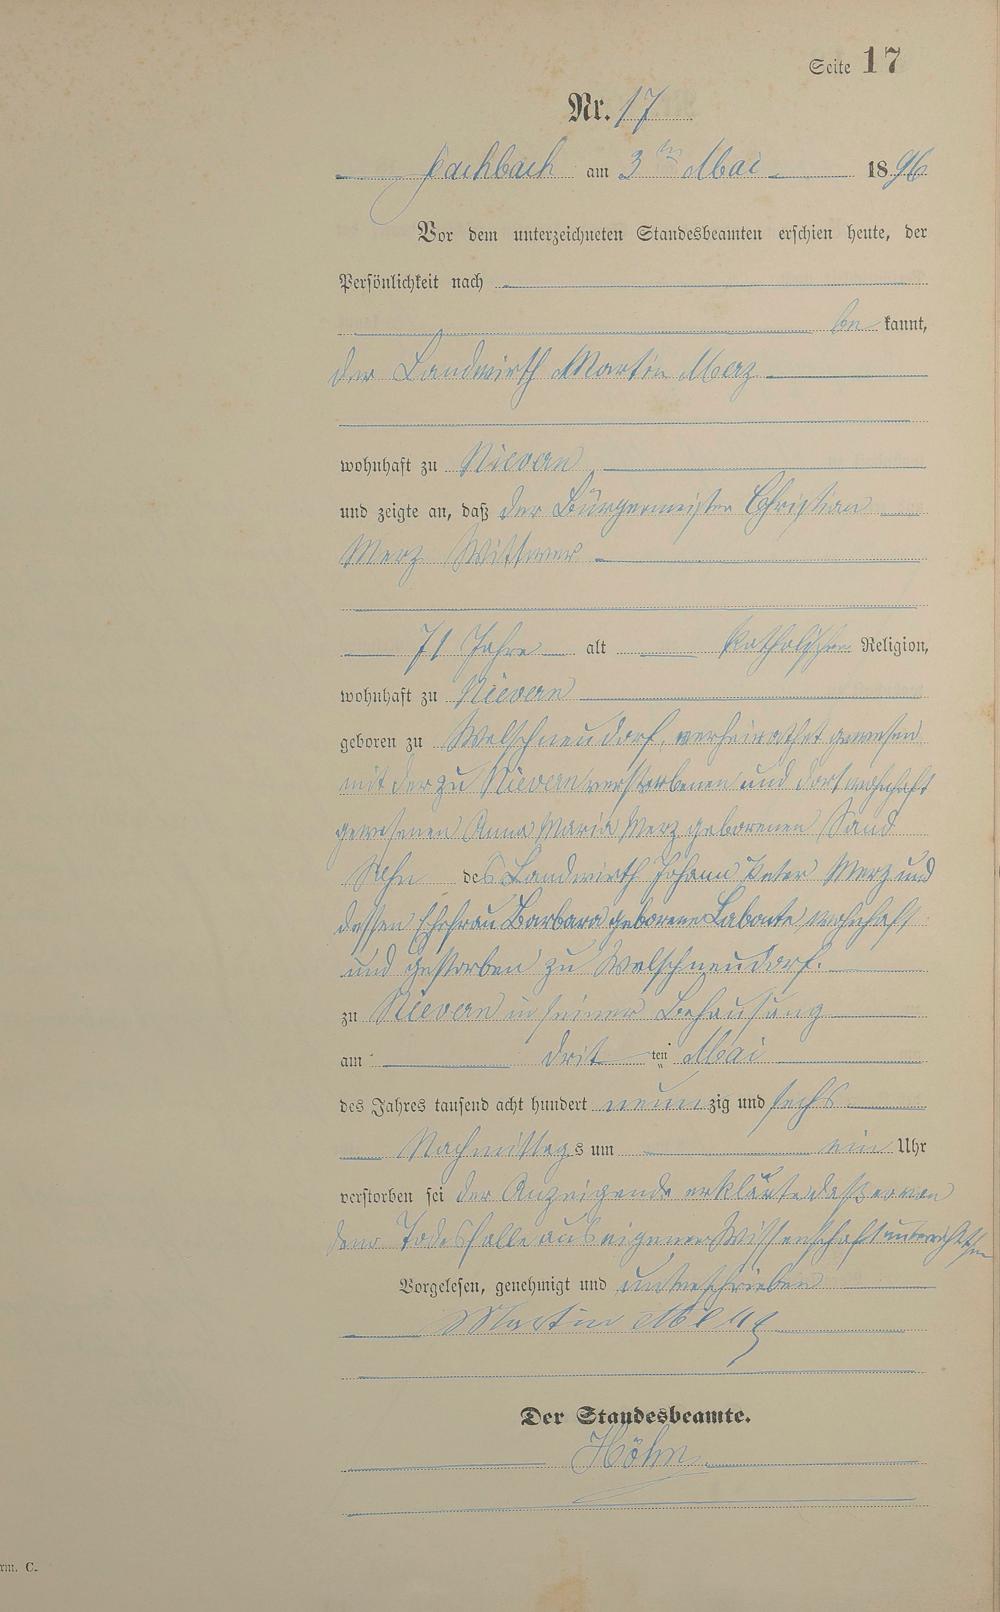 Seite 17
Nr. 17
Fachbach am 3ten Mai 1896
Vor dem unterzeichneten Standesbeamten erschien heute, der
Persönlichkeit nach
be kannt,
der Landwirth Martin Merz
wohnhaft zu Nievern
und zeigte an, daß der Bürgermeister Christian
Merz Wittwer
71 Jahre alt katholischer Religion,
wohnhaft zu Nievern
geboren zu Welschneudorf, verheirathet gewesen
mit der zu Nievern verstorbenen und dort wohnhaft
gewesenen Anna Maria Merz geborenen Sand
Sohn des Landwirth Johann Peter Merz und
dessen Ehefrau Barbara geborene Labonte wohnhaft
und gestorben zu Welschneudorf.
zu Nievern in seiner Behausung
am drit ten Mai
des Jahres tausend acht hundert neun zig und sechs
Nachmittags um ein Uhr
verstorben sei der Anzeigende erklärte daß er von
dem Todesfalle aus eigener Wissenschaft unterrichtet sei
Vorgelesen, genehmigt und unterschrieben
Martin Merz
Der Standesbeamte.
Höhn
rm. C.